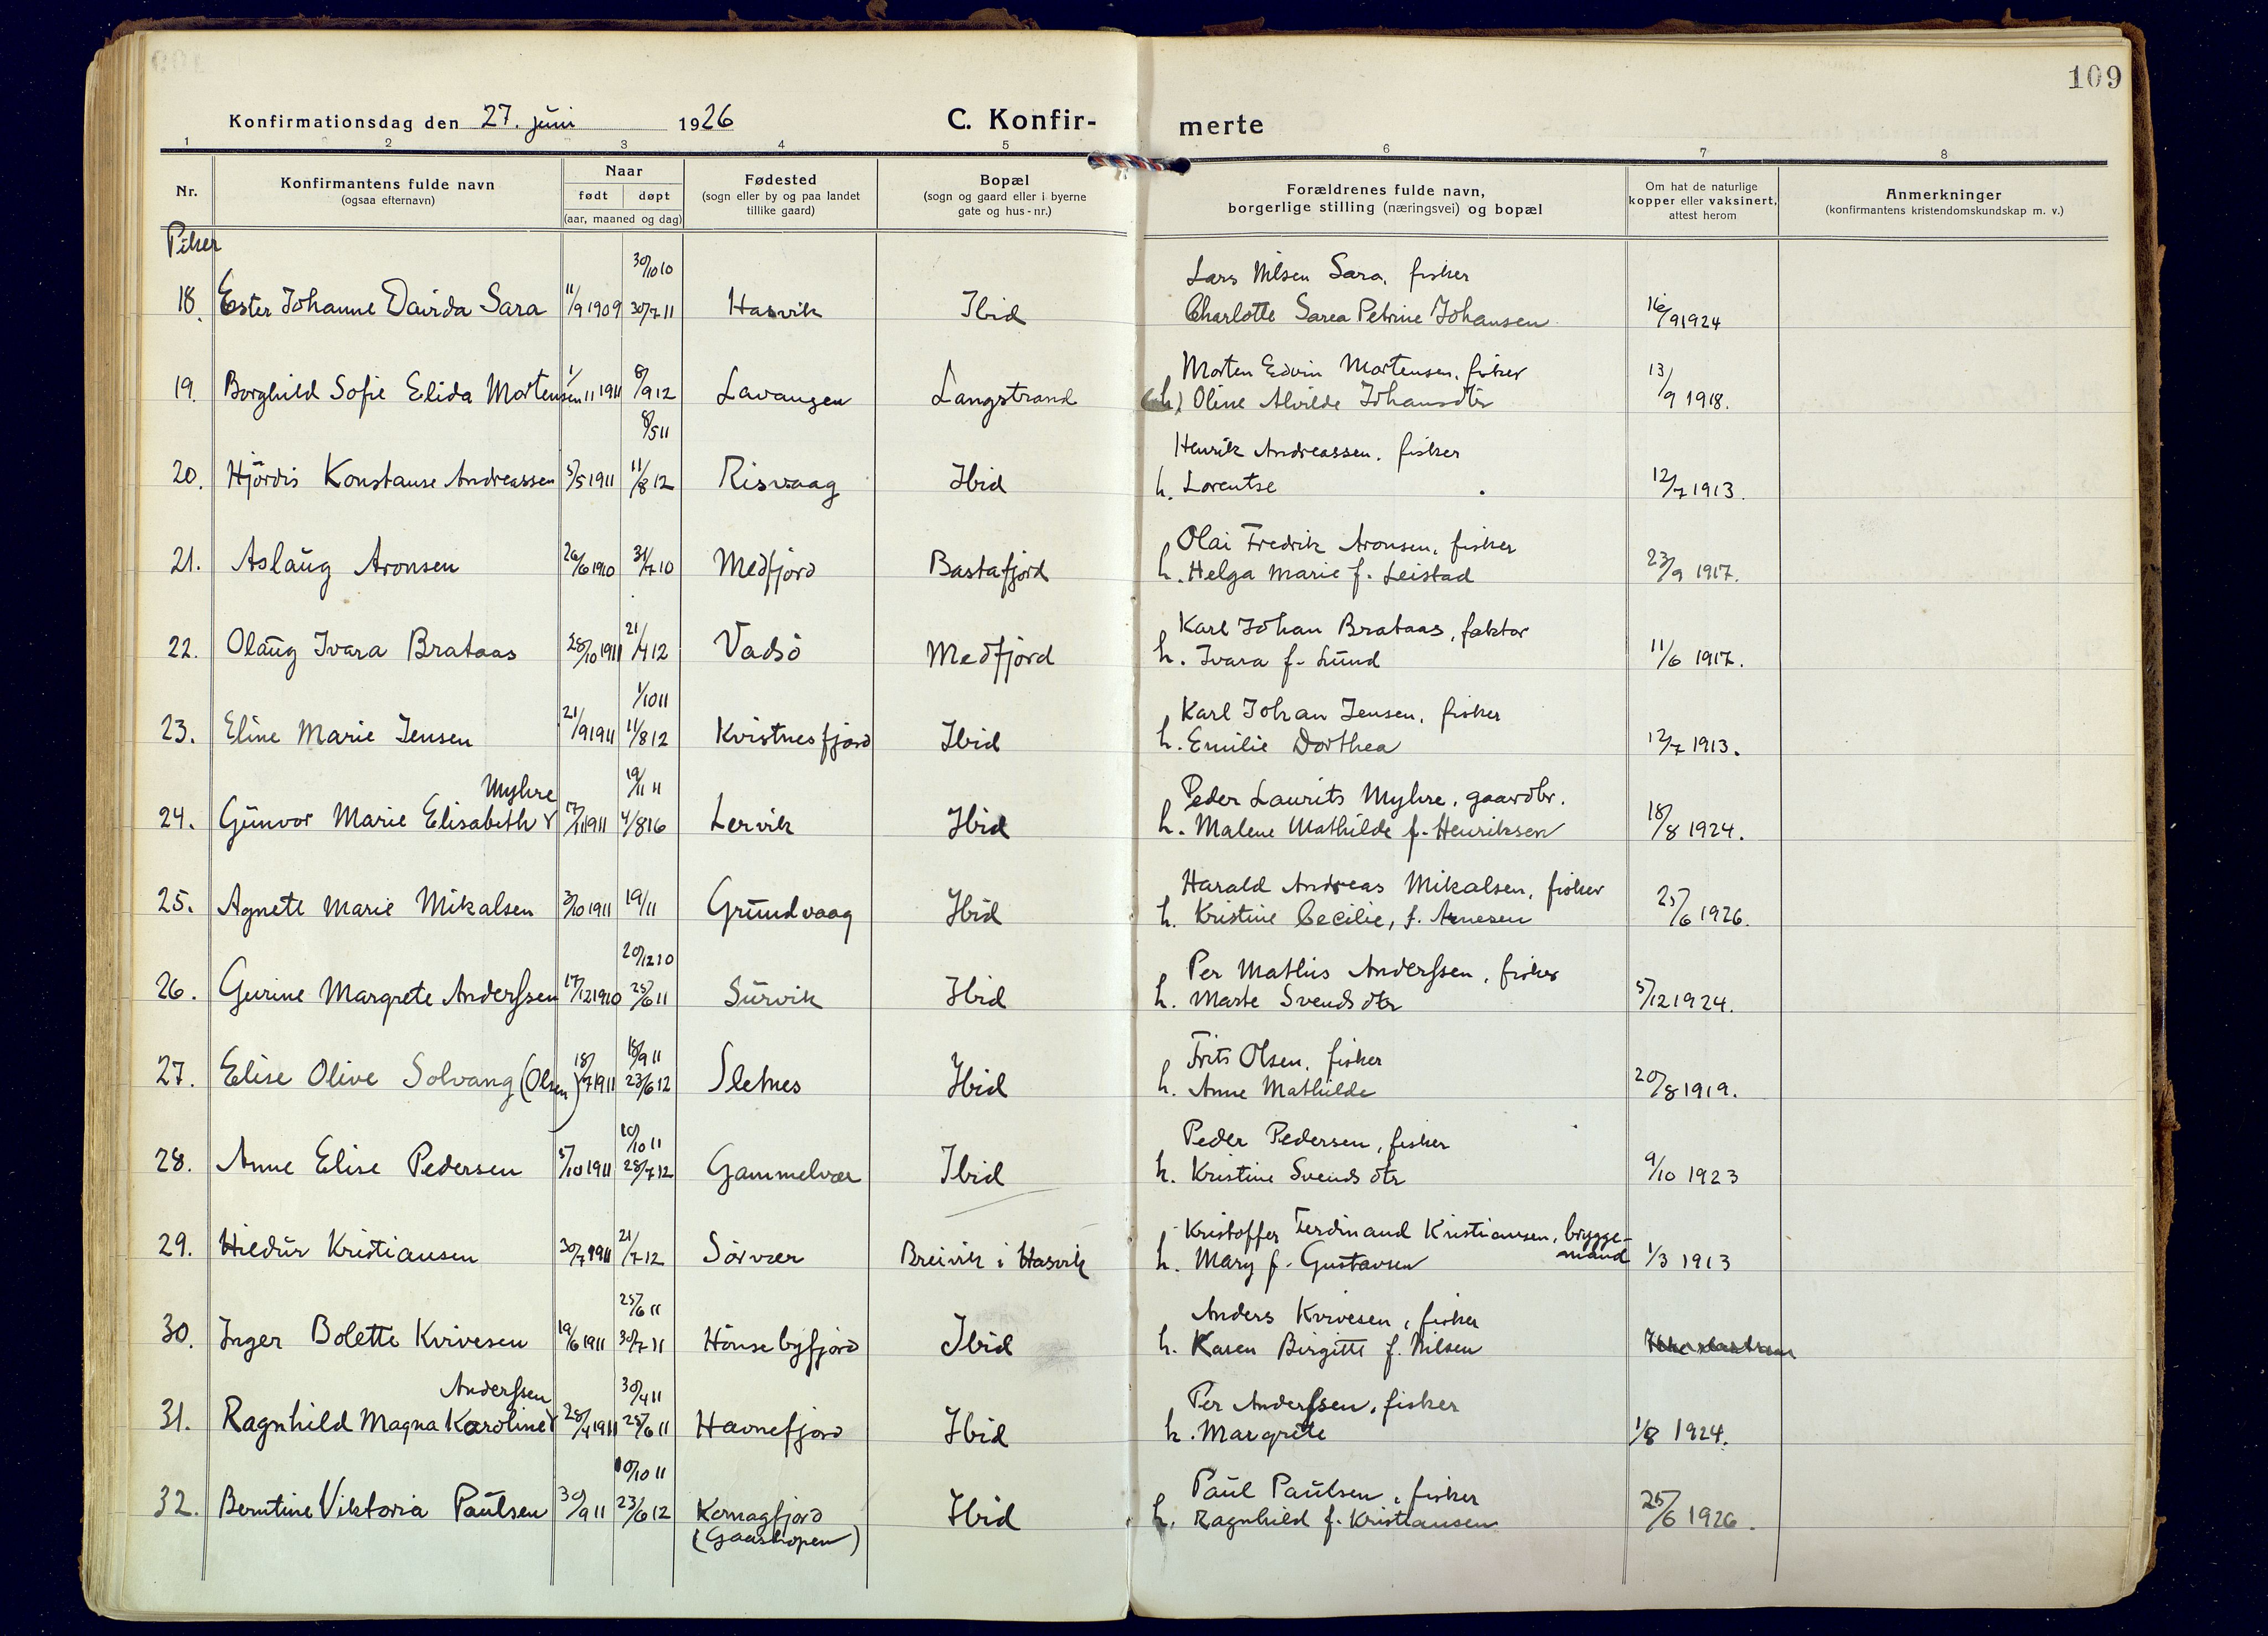 109
Konfirmationsdag den 27. juni 1926
C. Konfir-
merte
1 2 3 4 5 6 7 8
Nr.
Konfirmantens fulde navn
(ogsaa efternavn)
Naar
født døpt
(aar, maaned og dag)
Fødested
(sogn eller by og paa landet
tillike gaard)
Bopæl
(sogn og gaard eller i byerne
gate og hus-nr.)
Forældrenes fulde navn,
borgerlige stilling (næringsvei) og bopæl
Om hat de naturlige
kopper eller vaksinert,
attest herom
Anmerkninger
(konfirmantens kristendomskundskap m. v.)
Piker
30/10 10 Lars Nilsen Sara, fisker
18. Ester Johanne Davida Sara 11/9 1909 30/7 11 Hasvik Ibid Charlotte Sarea Petrine Johansen 16/9 1924
Morten Edvin Mortensen, fisker
19. Borghild Sofie Elida Mortensen 1/11 1911 8/9 12 Lavangen Langstrand (h) Oline Alvilde Johansdtr 13/9 1918.
8/5 11 Henrik Andreassen, fisker
20. Hjördis Konstanse Andreassen 5/5 1911 11/8 12 Risvaag Ibid h. Lorentse 12/7 1913.
Olai Fredrik Aronsen, fisker
21. Aslaug Aronsen 26/6 1910 31/7 10 Medfjord Bastafjord h. Helga Marie f. Leistad 23/9 1917.
Karl Johan Brataas, faktor
22. Olaug Ivara Brataas 28/10 1911 21/4 12 Vadsö Medfjord h. Ivara f. Lund 11/6 1917.
1/10 11 Karl Johan Jensen, fisker
23. Eline Marie Jensen 21/9 1911 11/8 12 Kvistnesfjord Ibid h. Emilie Dorthea 12/7 1913.
Myhre 19/11 11 Peder Laurits Myhre, gaardbr.
24. Gunvor Marie Elisabeth 17/11 1911 4/8 16 Lervik Ibid h. Malene Mathilde f. Henriksen 18/8 1924.
Harald Andreas Mikalsen, fisker
25. Agnete Marie Mikalsen 3/10 1911 19/11 Grundvaag Ibid h. Kristine Cecilie, f. Arnesen 25/6 1926.
20/12 10 Per Mathis Anderssen, fisker
26. Gurine Margrete Anderssen 17/12 1910 25/6 11 Survik Ibid h. Marte Svendsdtr 5/12 1924.
18/9 11 Frits Olsen, fisker
27. Elise Olive Solvang (Olsen) 18/7 1911 23/6 12 Sletnes Ibid h. Anne Mathilde 20/8 1919.
10/10 11 Peder Pedersen, fisker
28. Anne Elise Pedersen 5/10 1911 28/7 12 Gammelvær Ibid h. Kristine Svendsdtr 9/10 1923
Kristoffer Ferdinand Kristiansen, brygge-
29. Hildur Kristiansen 30/7 1911 21/7 12 Sörvær Breivik i Hasvik h. Mary f. Gustavsen mand 1/3 1913
25/6 11 Anders Kvivesen, fisker
30. Inger Bolette Kvivesen 19/6 1911 30/7 11 Hönsebyfjord Ibid h. Karen Birgitte f. Nilsen
Anderssen 30/4 11 Per Anderssen, fisker
31. Ragnhild Magna Karoline 28/4 1911 25/6 11 Havnefjord Ibid h. Margrete 1/8 1924.
10/10 11 Paul Paulsen, fisker
32. Berntine Viktoria Paulsen 30/9 11 23/6 12 Komagfjord Ibid h. Ragnhild f. Kristiansen 25/6 1926.
(Gaashopen)